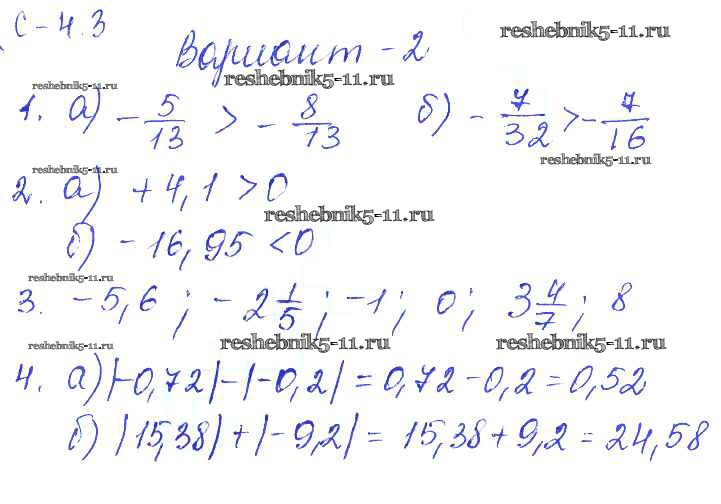 С-4.3
reshebnik5-11.ru
Вариант-2
reshebnik5-11.ru
reshebnik5-11.ru
1. а) -5/13 > -8/13 б) -7/32 > -7/16
reshebnik5-11.ru
reshebnik5-11.ru
2. а) +4,1 > 0
reshebnik5-11.ru
б) -16,95 < 0
reshebnik5-11.ru
3. -5,6 ; -2 1/5 ; -1 ; 0 ; 3 4/7 ; 8
reshebnik5-11.ru reshebnik5-11.ru reshebnik5-11.ru
4. а) |-0,72| - |-0,2| = 0,72 - 0,2 = 0,52
б) |15,38| + |-9,2| = 15,38 + 9,2 = 24,58